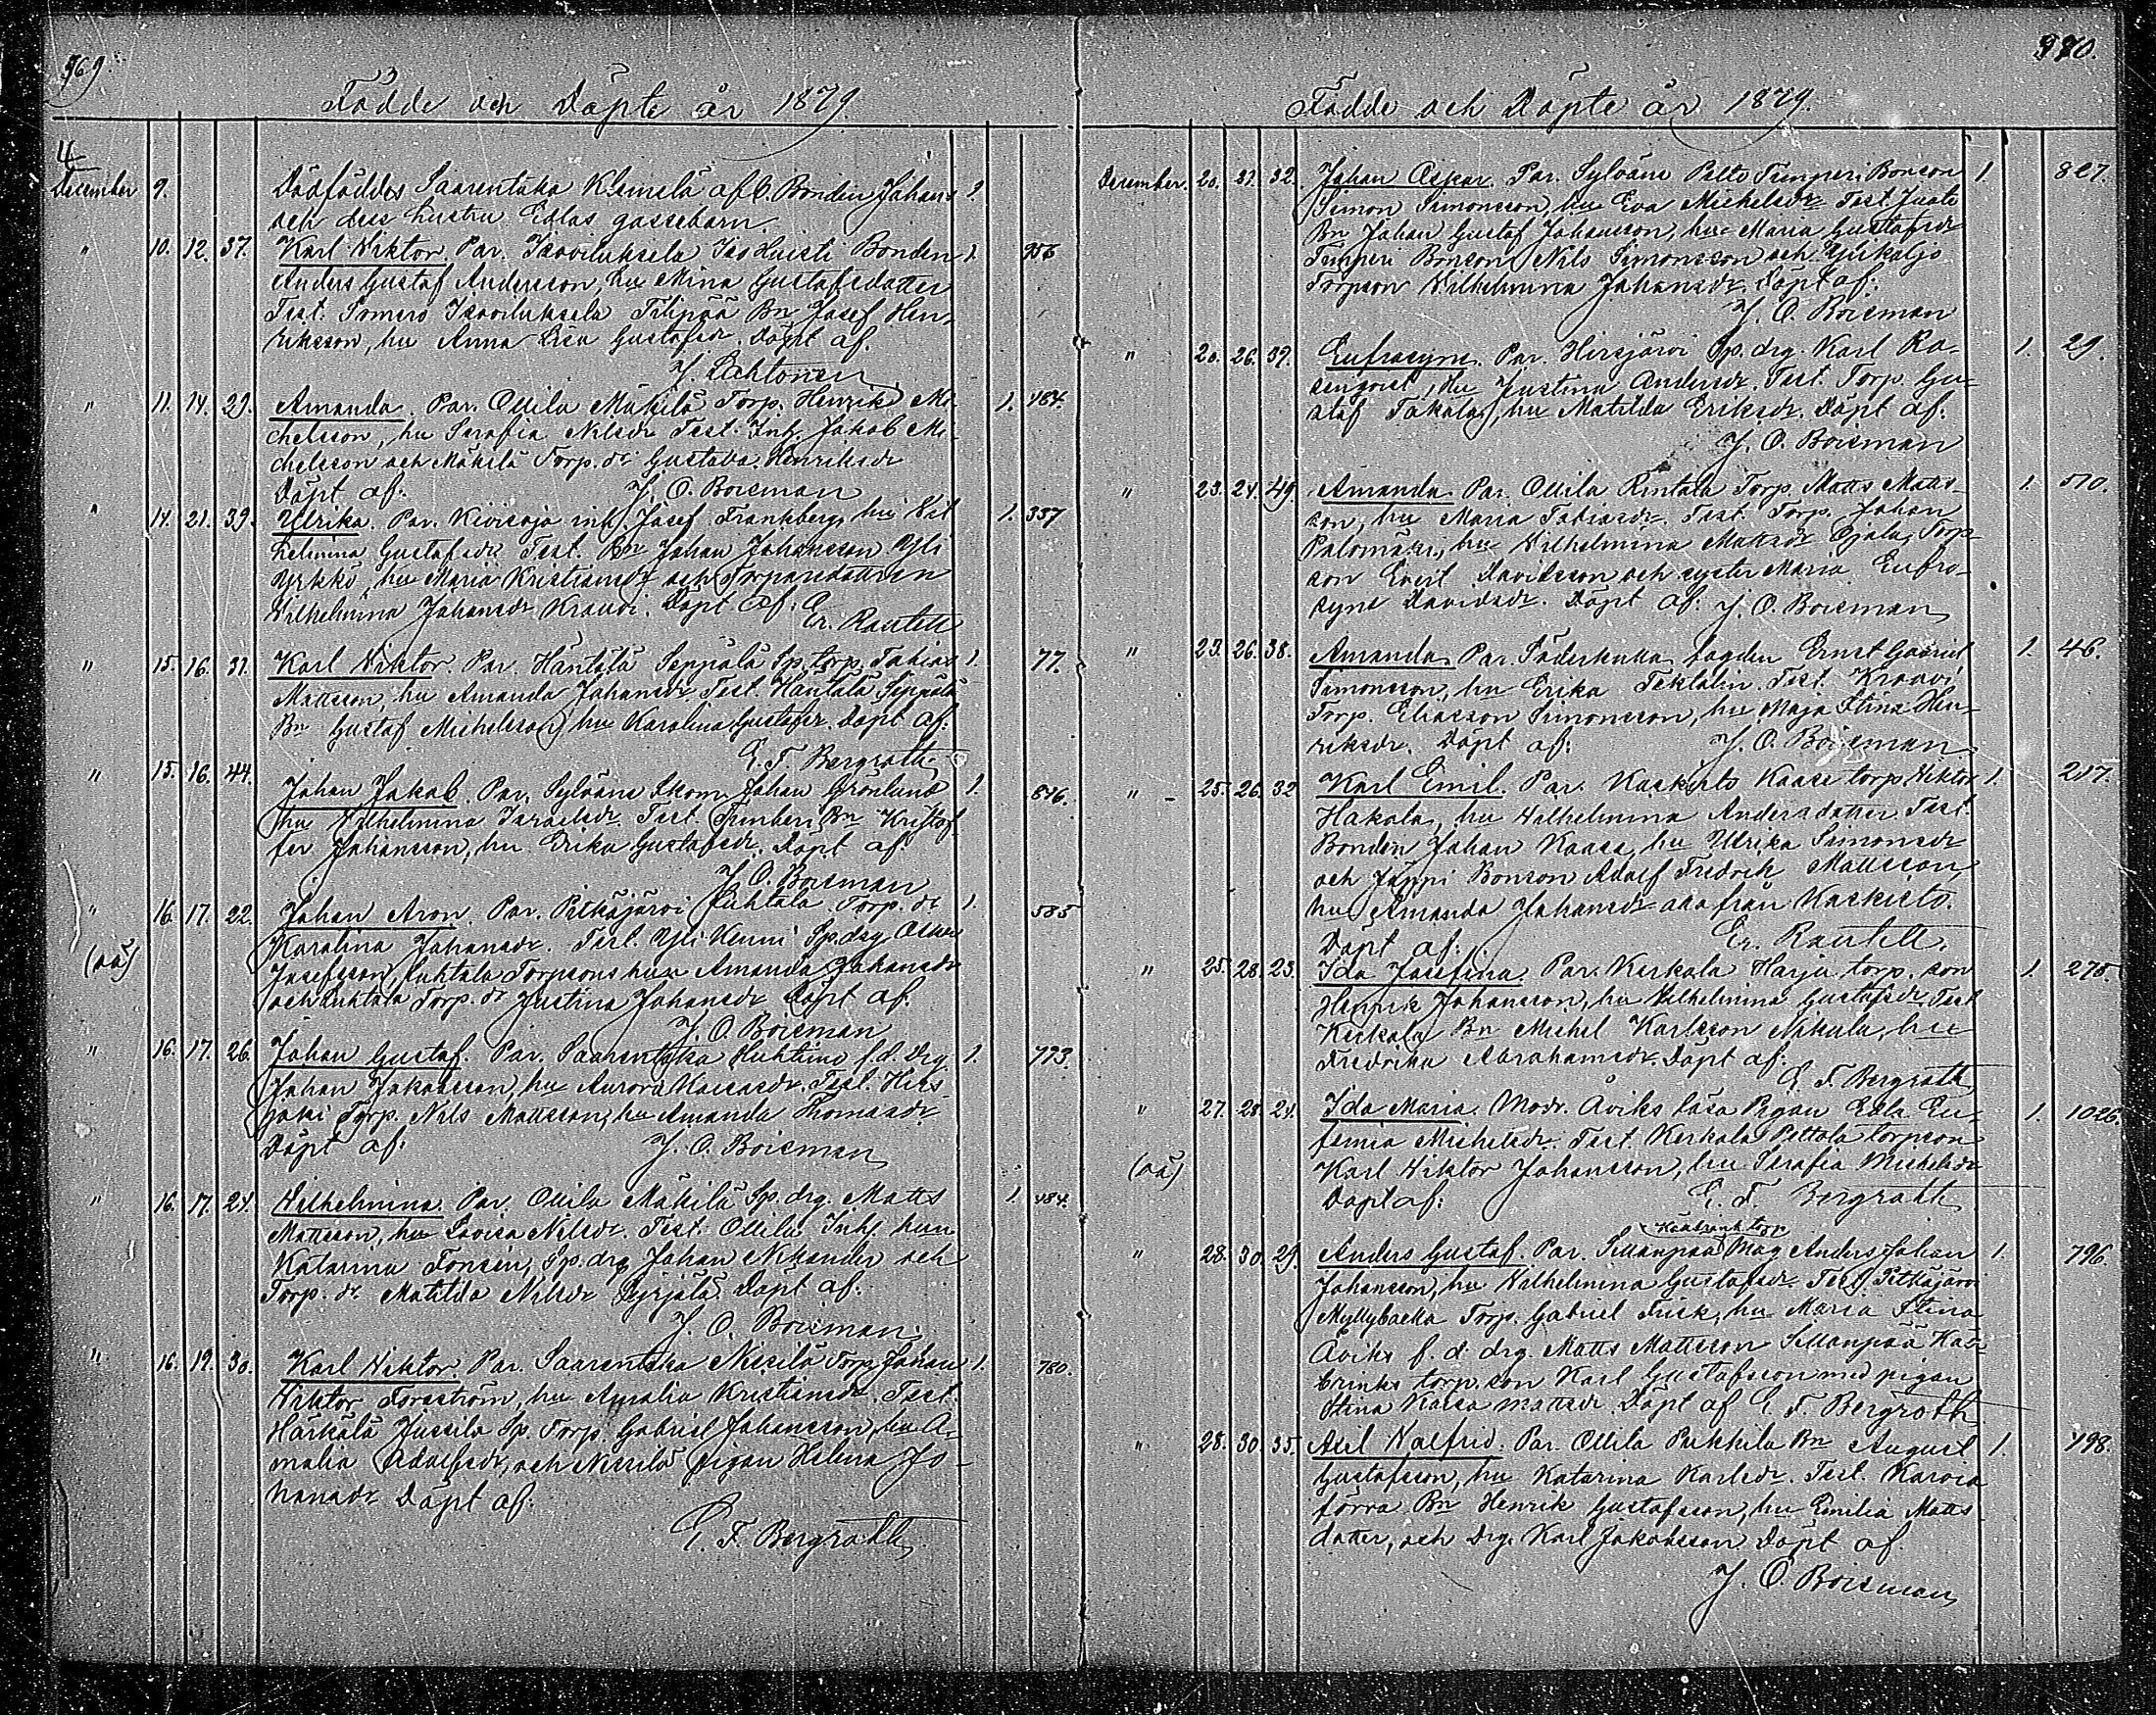 569.
Födde och Döpte år 1879.
4
December 9. Dödföddes Saarentaka Klemelä af C. Bonden Johans 1.
och dess hustru Edlas gossebarn.
" 10. 12. 37. Karl Wiktor. Par. Isoviluksela Iso Huisti Bonden 1. 956
Anders Gustaf Andersson, hu Mina Gustafsdotter
Test. Somero Isoviluksela Filipää Bn Josef Hen-
riksson, hu Anna Lisa Gustafsdr. Döpt af.
J. Lehtonen
" 11. 14. 29. Amanda. Par. Ollila Mäkilä Torp. Henrik Mi- 1. 484.
chelsson, hu Serafia Nilsdr Test. Inh. Jakob Mi-
chelsson och Mäkilä Torp. dr Gustava Henriksdr
Döpt af. J. O. Boisman
" 14. 21. 39. Ulrika. Par. Kivisoja inh. Josef Frankberg, hu Wil 1. 337
helmina Gustafsdr Test. Bn Johan Johansson Yli
Yrkkö, hu Maria Kristiansdr och Torparedottren
Wilhelmina Johansdr Krouvi. Döpt af: Er. Rautell
" 15. 16. 31. Karl Wiktor. Par. Häntälä Seppälä Sp. torp. Tobias 1. 77.
Mattsson, hu Amanda Johansdr Test. Häntälä Seppälä
Bn Gustaf Michelsson, hu Karolina Gustafsr. Döpt af.
E. F. Bergroth
" 15. 16. 44. Johan Jakob. Par. Sylvänä Skom. Johan Grönlund 1. 846.
hu Wilhelmina Israelsdr. Test. Bn Kristof-
fer Johansson, hu Erika Gustafsdr. Döpt af
J. O. Boisman
" 16. 17. 22. Johan Aron. Par. Pitkäjärvi Luhtala Torp. dr 1. 585
(oä) Karolina Johansdr. Test. Yli Kenni Sp. drg Oskar
Josefsson, Luhtala Torpsons hu Amanda Johansdr
och Luhtala Torp. dr Justina Johansdr Döpt af.
J. O. Boisman
" 16. 17. 26. Johan Gustaf. Par. Saarentaka Huhtimo f. d. Drg 1. 773.
Johan Jakobsson, hu Aurora Kaisasdr. Test. Hirs-
joki Torp. Nils Mattsson, hu Amanda Thomasdr
Döpt af: J. O. Boisman
" 16. 17. 24. Wilhelmina. Par. Ollila Mäkilä Sp. drg. Matts 1. 484.
Mattsson, hu Lovisa Nilsdr. Test. Ollila Inh. hun
Katarina Fonsén, Sp. drg Johan Nikander och
Torp. dr. Matilda Nilsdr Pyrjälä. Döpt af.
J. O. Boisman.
" 16. 19. 30. Karl Wiktor. Par. Saarentaka Nissilä Torp. Johan 1. 780.
Wiktor Forsström, hu Amalia Kristiansdr. Test.
Härkälä Jussila Sp. Torp. Gabriel Johansson, hu A-
malia Adolfsdr, och Nissilä pigan Helena Jo-
hansdr Döpt af.
E. F. Bergroth
570.
Födde och Döpte år 1879.
December. 20. 31. 32. Johan Oskar. Par. Sylvänä Pelto Timperi Bonson 1. 827.
Simon Simonsson, hu Eva Michelsdr Test. Juate
Bn Johan Gustaf Johansson, hu Maria Gustafsdr
Timperi Bonson Nils Simonsson och
Torpson Wilhelmina Johansdr. Döpt af:
J. O. Boisman
" 20. 26. 39. Eufrosyne. Par. Hirsjärvi Sp. drg. Karl Ro- 1. 29.
senqvist, hu Justina Andersdr. Test. Torp. Gu-
staf Takala, hu Matilda Eriksdr. Döpt af:
J. O. Boisman
" 23. 24. 49. Amanda. Par. Ollila Rintala Torp. Matts Matts- 1. 510.
son, hu Maria Tobiasdr. Test. Torp. Johan
Palomäki, hu Wilhelmina Mattsdr Ojala, Torp-
son Evert Davidsson och syster Maria Eufro-
syne Davidsdr. Döpt af: J. O. Boisman
" 23. 26. 38. Amanda. Par. Söderkulla fogden Ernst Gabriel 1. 46.
Simonsson, hu Erika Teklalin. Test. Krouvi
Torp. Eliasson Simonsson, hu Maja Stina Hen-
riksdr. Döpt af: J. O. Boisman
" 25. 26. 32 Karl Emil. Par. Kaskisto Kaase torp. Wiktor 1. 217.
Hakala, hu Wilhelmina Andersdotter Test.
Bonden Johan Kaasa, hu Ulrika Simonsdr
och Jäppi Bonson Adolf Fredrik Mattsson
hu Amanda Johansdr alla från Kaskisto.
Döpt af: Er. Rautell.
" 25. 28. 23. Ida Josefina. Par. Kerkola Harju torp. son 1. 275.
Henrik Johansson, hu Wilhelmina Gustafsdr. Test
Kerkola Bn Michel Karlsson Nikula, hu
Fredrika Abrahamsdr. Döpt af:
E. F. Bergroth
" 27. 28. 24. Ida Maria. Modr. Åviks lösa Pigan Edla Eu- 1. 1026.
femia Michelsdr. Test. Kerkola Pettola torpson
(oä) Karl Wiktor Johansson, hu Serafia Michelsdr
Döpt af: E. F. Bergroth
torp.
" 28. 30. 29. Anders Gustaf. Par. Sillanpää Mag Anders Johan 1. 796.
Johansson, hu Wilhelmina Gustafsdr Test. Pitkäjärvi
Myllybacka Torp. Gabriel Frisk, hu Maria Stina
Åviks f. d. drg. Matts Mattsson Sillanpää
brinks torp. son Karl Gustafsson med pigan
Stina Kaisa Mattsdr. Döpt af E. F. Bergroth
" 28. 30. 35. Axel Walfrid. Par. Ollila Pukkila Bn August 1. 498.
Gustafsson, hu Katarina Karlsdr. Test.
förra Bn Henrik Gustafsson, hu Emilia Matts
dotter, och Drg. Karl Jakobsson Döpt af
J. O. Boisman